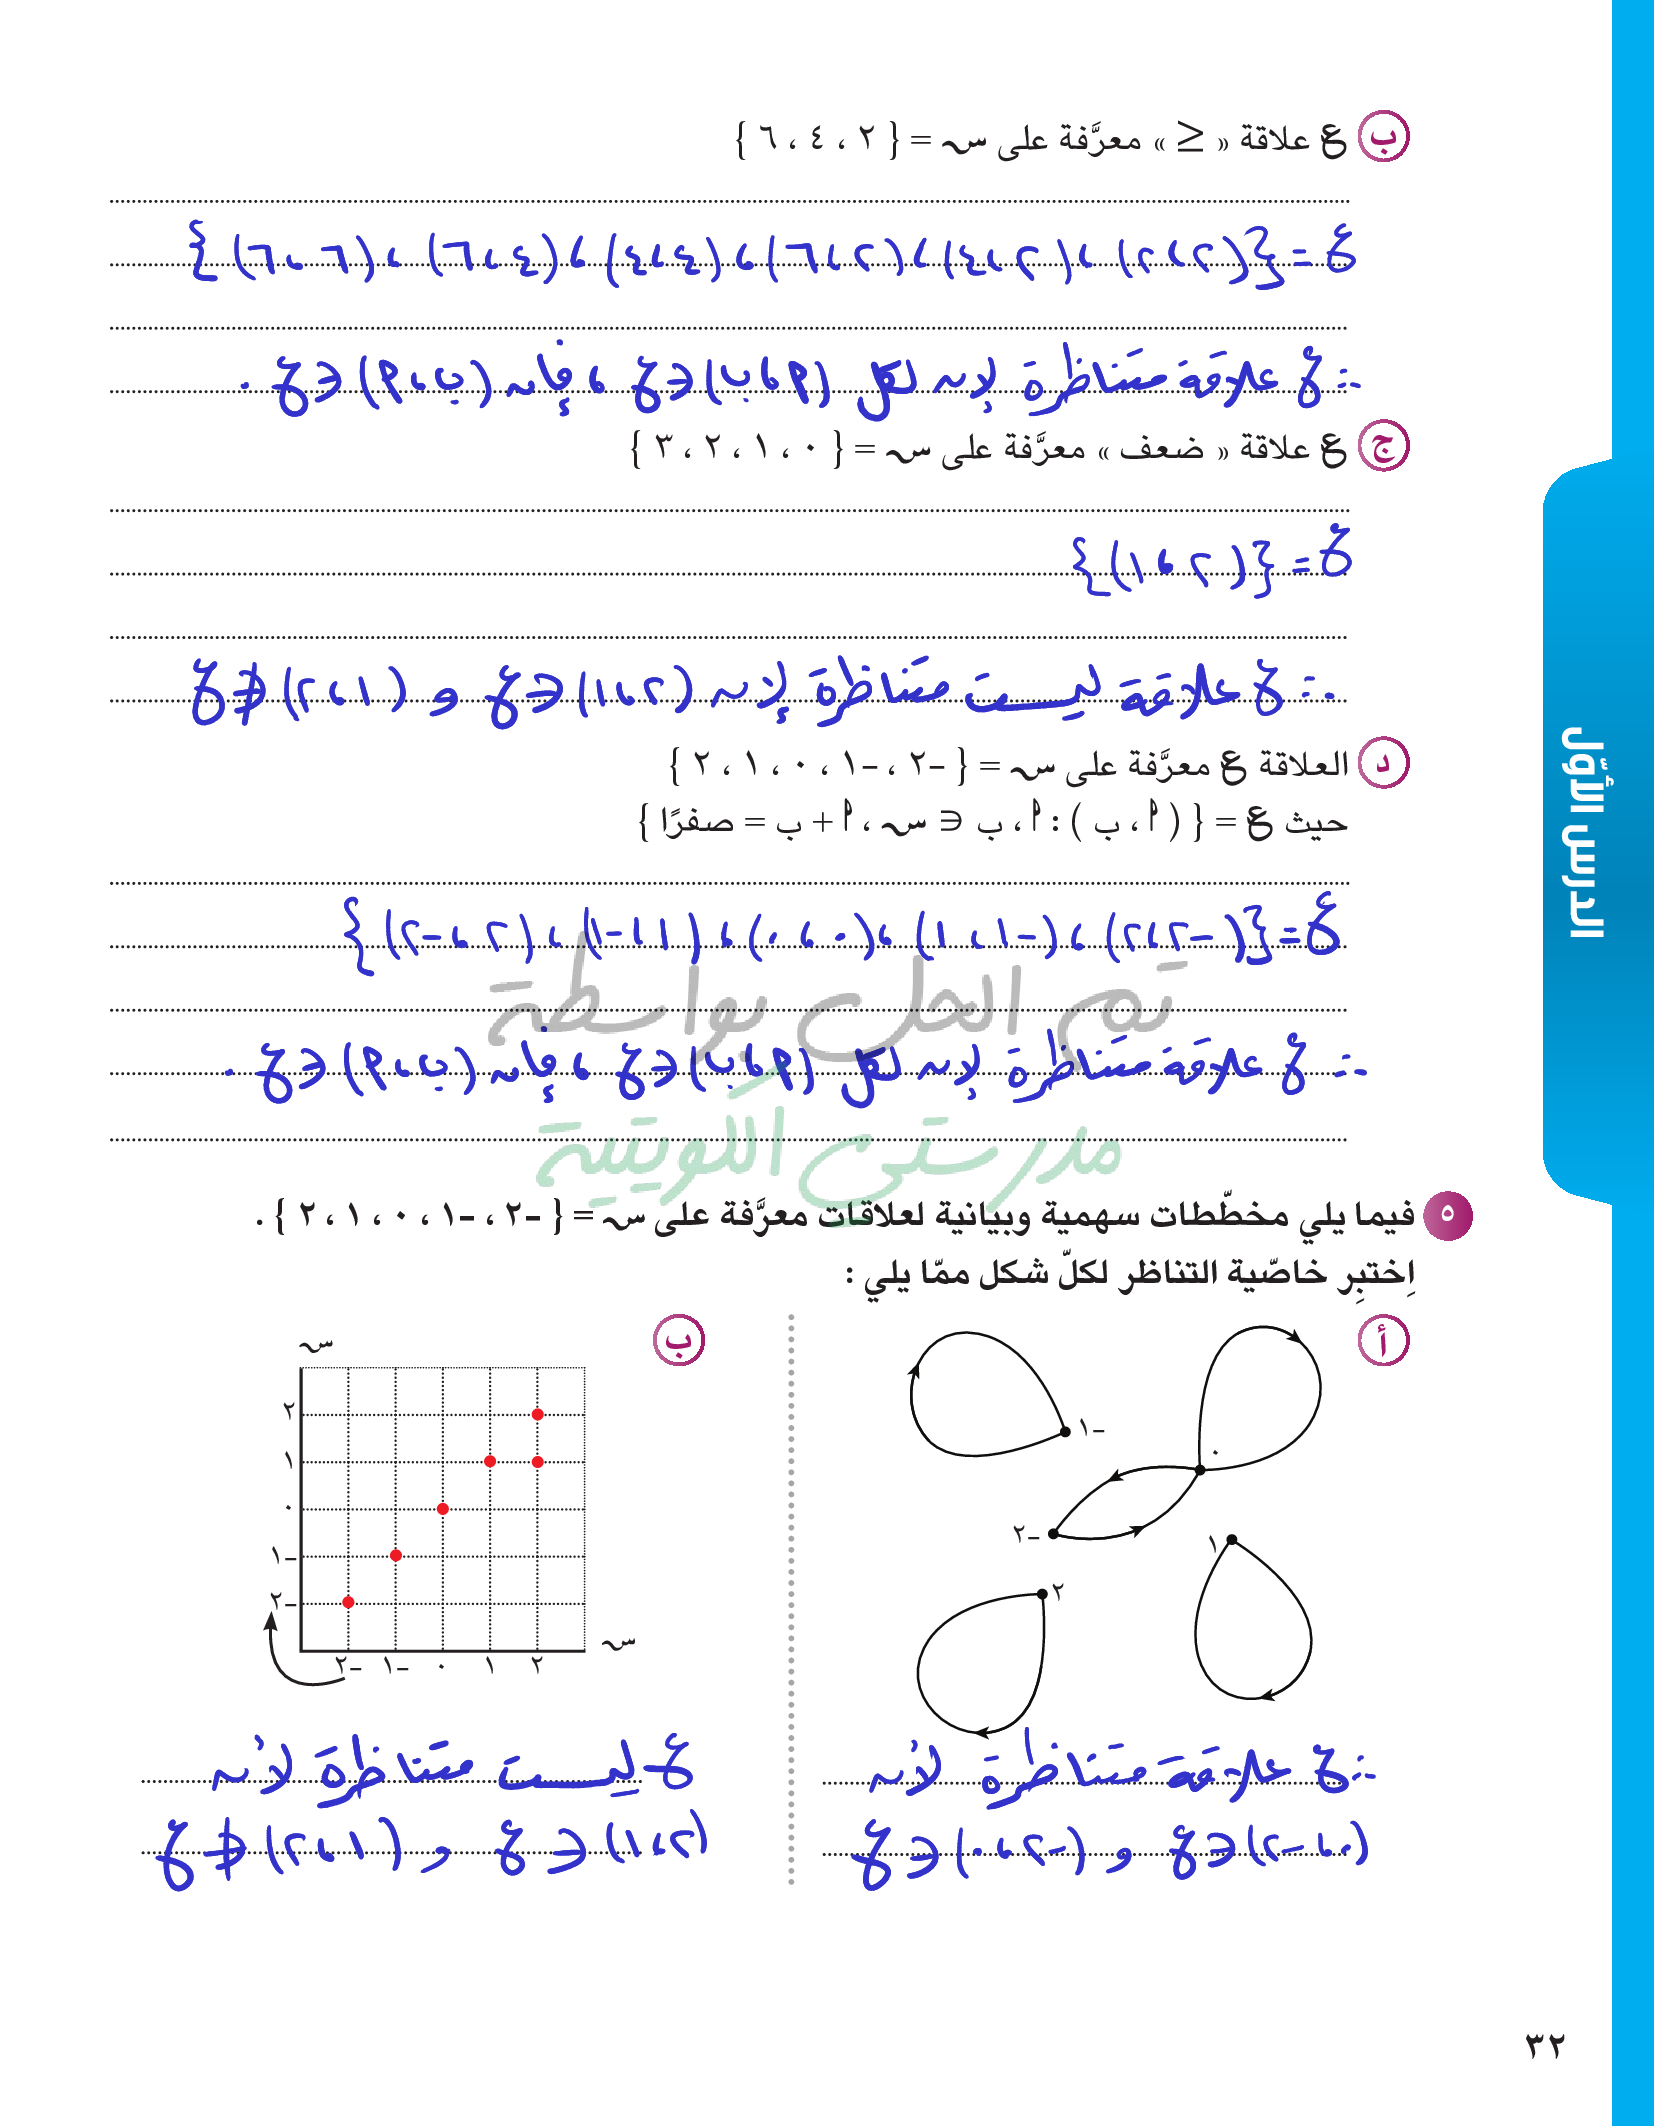 ب ع علاقة « ≤ » معرَّفة على س = { ٢ ، ٤ ، ٦ }
ع = {(٢،٢) ، (٢،٤) ، (٢،٦) ، (٤،٤) ، (٤،٦) ، (٦،٦)}
∴ ع علاقة متناظرة لإنه لكل (٩،ب) ∈ ع ، فإنه (ب،٩) ∈ ع .
ج ع علاقة « ضعف » معرَّفة على س = { ٠ ، ١ ، ٢ ، ٣ }
ع = {(٢،١)}
∴ ع علاقة ليست متناظرة لإنه (٢،١) ∈ ع و (١،٢) ∉ ع
د العلاقة ع معرَّفة على س = { -٢ ، -١ ، ٠ ، ١ ، ٢ }
حيث ع = { ( أ ، ب ) : أ ، ب ∈ س ، أ + ب = صفرًا }
ع = {(-٢،٢) ، (-١،١) ، (٠،٠) ، (١،-١) ، (٢،-٢)}
تم الحل بواسطة
∴ ع علاقة متناظرة لإنه لكل (٩،ب) ∈ ع ، فإنه (ب،٩) ∈ ع .
مدرستي الكويتية
٥ فيما يلي مخطّطات سهمية وبيانية لعلاقات معرَّفة على س = { -٢ ، -١ ، ٠ ، ١ ، ٢ } .
اِختبِر خاصّية التناظر لكلّ شكل ممّا يلي :
أ
-١
٠
-٢
١
٢
∴ ع علاقة متناظرة لأنه
(٠،-٢) ∈ ع و (-٢،٠) ∈ ع
ب
س
٢
١
٠
-١
-٢
س
-٢ -١ ٠ ١ ٢
ع ليست متناظرة لأنه
(٢،١) ∈ ع و (١،٢) ∉ ع
الدرس الأوّل
٣٢